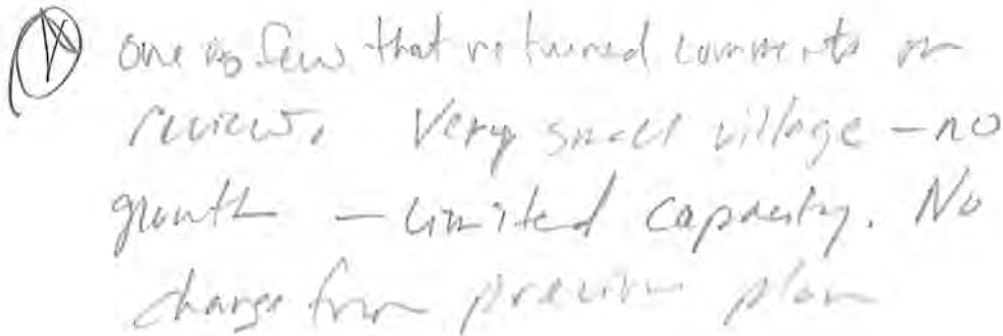 one of few that returned comments on
review. Very small village - no
growth - Limited capacity. No
change from previous plan